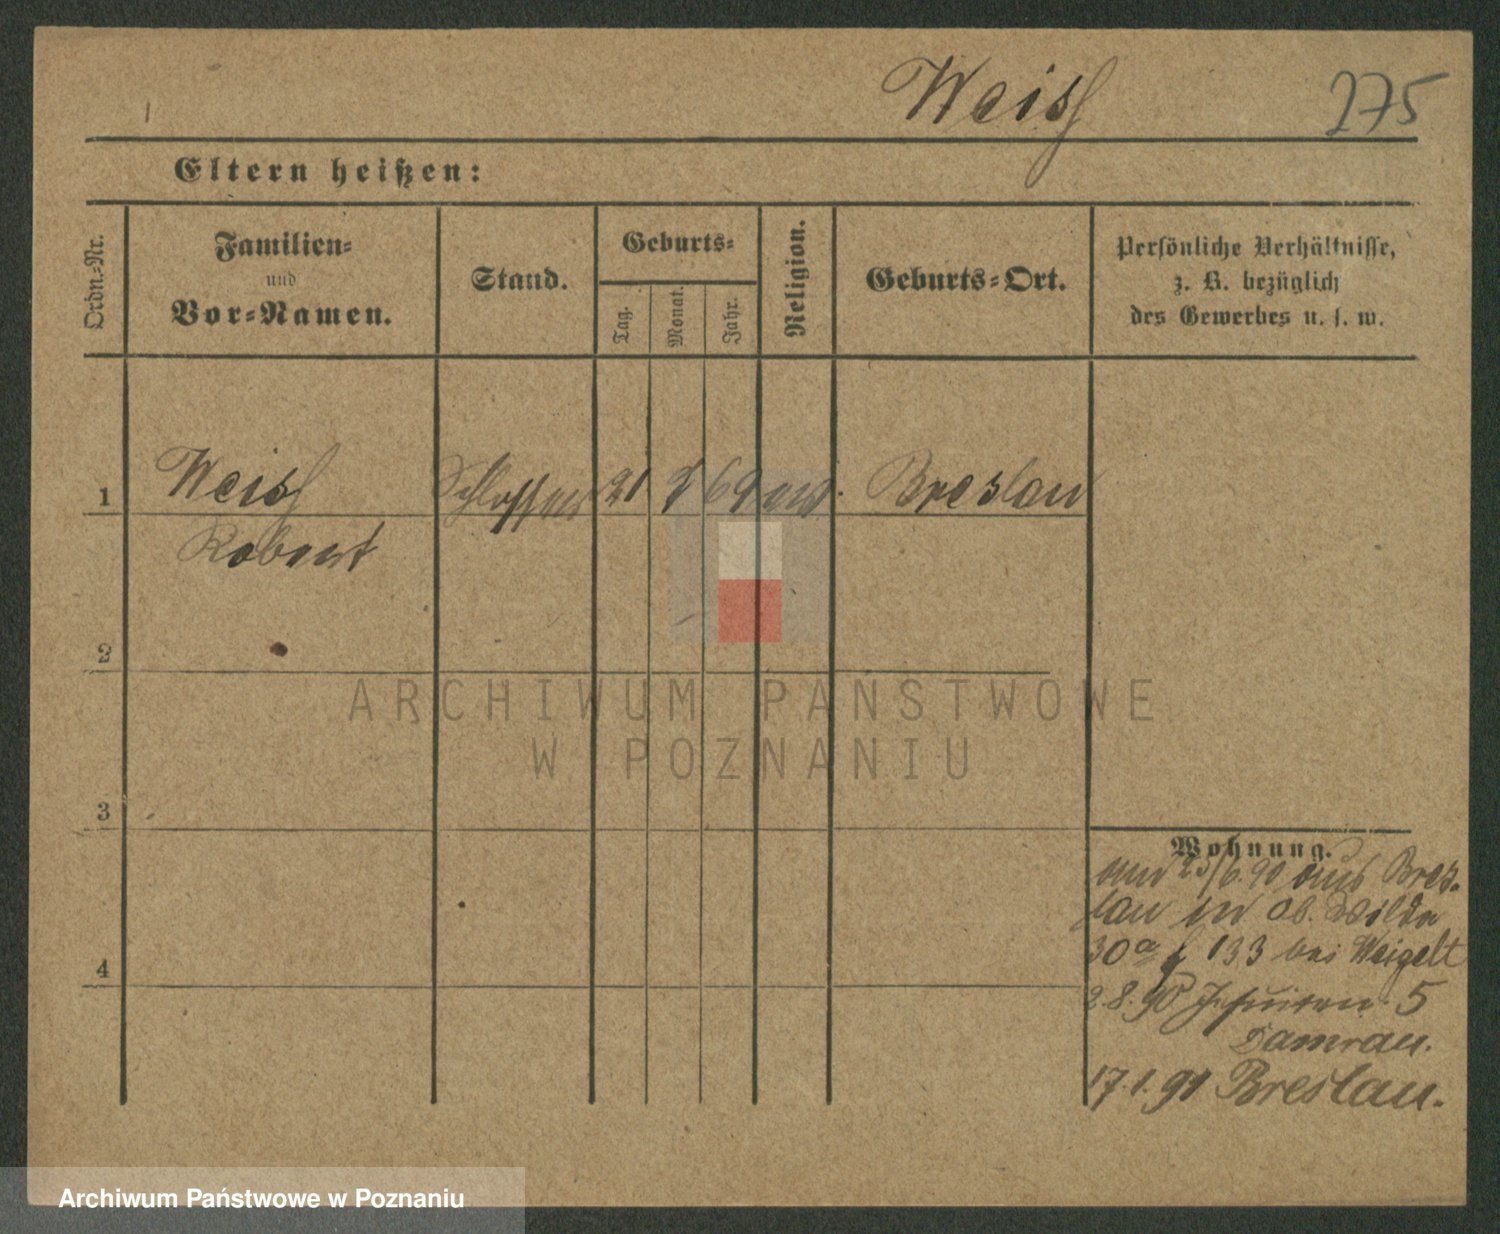 Weiß
275
Eltern heißen:
Ordn.-Nr.
Familien-
und
Vor-Namen.
Stand.
Geburts-
Tag.
Monat.
Jahr.
Religion.
Geburts-Ort.
Persönliche Verhältnisse,
z. B. bezüglich
des Gewerbes u. s. w.
1
Weiß
Schlosser
21
69
Breslau
Robert
2
3
4
Wohnung.
am 25/6.90 aus Bres-
lau in Ob. Wilda
30a 133 bei Weigelt
2.8.90 Jesuiten 5
Damrau.
17.1.91 Breslau.
ARCHIWUM PAŃSTWOWE
W POZNANIU
Archiwum Państwowe w Poznaniu